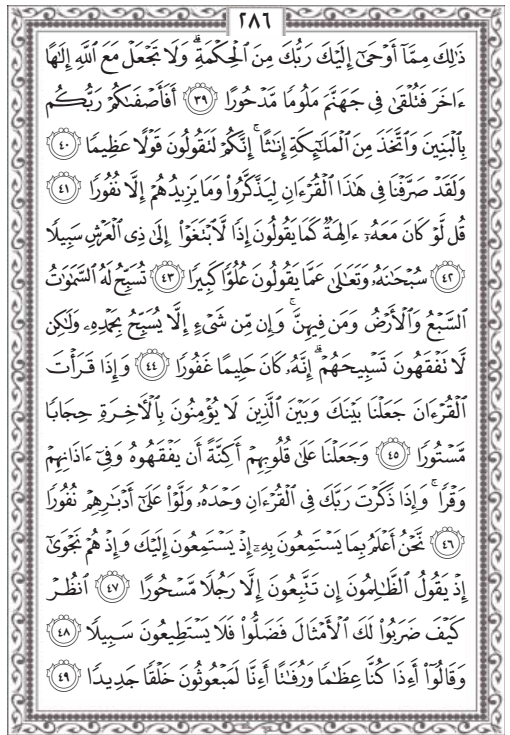 ٢٨٦
ذَٰلِكَ مِمَّآ أَوْحَىٰٓ إِلَيْكَ رَبُّكَ مِنَ ٱلْحِكْمَةِۗ وَلَا تَجْعَلْ مَعَ ٱللَّهِ إِلَٰهًا
ءَاخَرَ فَتُلْقَىٰ فِى جَهَنَّمَ مَلُومًا مَّدْحُورًا ٣٩ أَفَأَصْفَىٰكُمْ رَبُّكُم
بِٱلْبَنِينَ وَٱتَّخَذَ مِنَ ٱلْمَلَٰٓئِكَةِ إِنَٰثًاۚ إِنَّكُمْ لَتَقُولُونَ قَوْلًا عَظِيمًا ٤٠
وَلَقَدْ صَرَّفْنَا فِى هَٰذَا ٱلْقُرْءَانِ لِيَذَّكَّرُوا۟ وَمَا يَزِيدُهُمْ إِلَّا نُفُورًا ٤١
قُل لَّوْ كَانَ مَعَهُۥٓ ءَالِهَةٌ كَمَا يَقُولُونَ إِذًا لَّٱبْتَغَوْا۟ إِلَىٰ ذِى ٱلْعَرْشِ سَبِيلًا
٤٢ سُبْحَٰنَهُۥ وَتَعَٰلَىٰ عَمَّا يَقُولُونَ عُلُوًّا كَبِيرًا ٤٣ تُسَبِّحُ لَهُ ٱلسَّمَٰوَٰتُ
ٱلسَّبْعُ وَٱلْأَرْضُ وَمَن فِيهِنَّۚ وَإِن مِّن شَىْءٍ إِلَّا يُسَبِّحُ بِحَمْدِهِۦ وَلَٰكِن
لَّا تَفْقَهُونَ تَسْبِيحَهُمْۗ إِنَّهُۥ كَانَ حَلِيمًا غَفُورًا ٤٤ وَإِذَا قَرَأْتَ
ٱلْقُرْءَانَ جَعَلْنَا بَيْنَكَ وَبَيْنَ ٱلَّذِينَ لَا يُؤْمِنُونَ بِٱلْءَاخِرَةِ حِجَابًا
مَّسْتُورًا ٤٥ وَجَعَلْنَا عَلَىٰ قُلُوبِهِمْ أَكِنَّةً أَن يَفْقَهُوهُ وَفِىٓ ءَاذَانِهِمْ
وَقْرًاۚ وَإِذَا ذَكَرْتَ رَبَّكَ فِى ٱلْقُرْءَانِ وَحْدَهُۥ وَلَّوْا۟ عَلَىٰٓ أَدْبَٰرِهِمْ نُفُورًا
٤٦ نَّحْنُ أَعْلَمُ بِمَا يَسْتَمِعُونَ بِهِۦٓ إِذْ يَسْتَمِعُونَ إِلَيْكَ وَإِذْ هُمْ نَجْوَىٰٓ
إِذْ يَقُولُ ٱلظَّٰلِمُونَ إِن تَتَّبِعُونَ إِلَّا رَجُلًا مَّسْحُورًا ٤٧ ٱنظُرْ
كَيْفَ ضَرَبُوا۟ لَكَ ٱلْأَمْثَالَ فَضَلُّوا۟ فَلَا يَسْتَطِيعُونَ سَبِيلًا ٤٨
وَقَالُوٓا۟ أَءِذَا كُنَّا عِظَٰمًا وَرُفَٰتًا أَءِنَّا لَمَبْعُوثُونَ خَلْقًا جَدِيدًا ٤٩